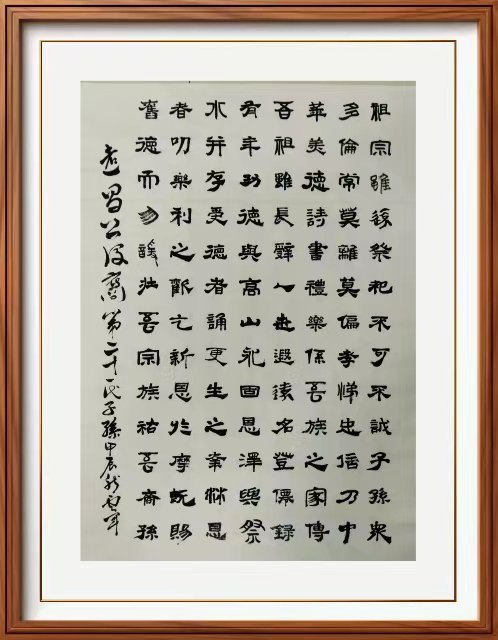 祖宗雖遠祭祀不可不誠子孫眾
多倫常莫離莫偏孝悌忠信乃中
華美德詩書禮樂係吾族之家傳
吾祖雖長辭人世遐遠名登僊録
有年功德與高山永固恩澤與祭
水并存受德者誦更生之輩沐恩
者叨樂利之歡乞新恩於靡既賜
舊德而勿諼壯吾宗族祐吾裔孫
昌公後裔第二十一代子孫甲辰秋